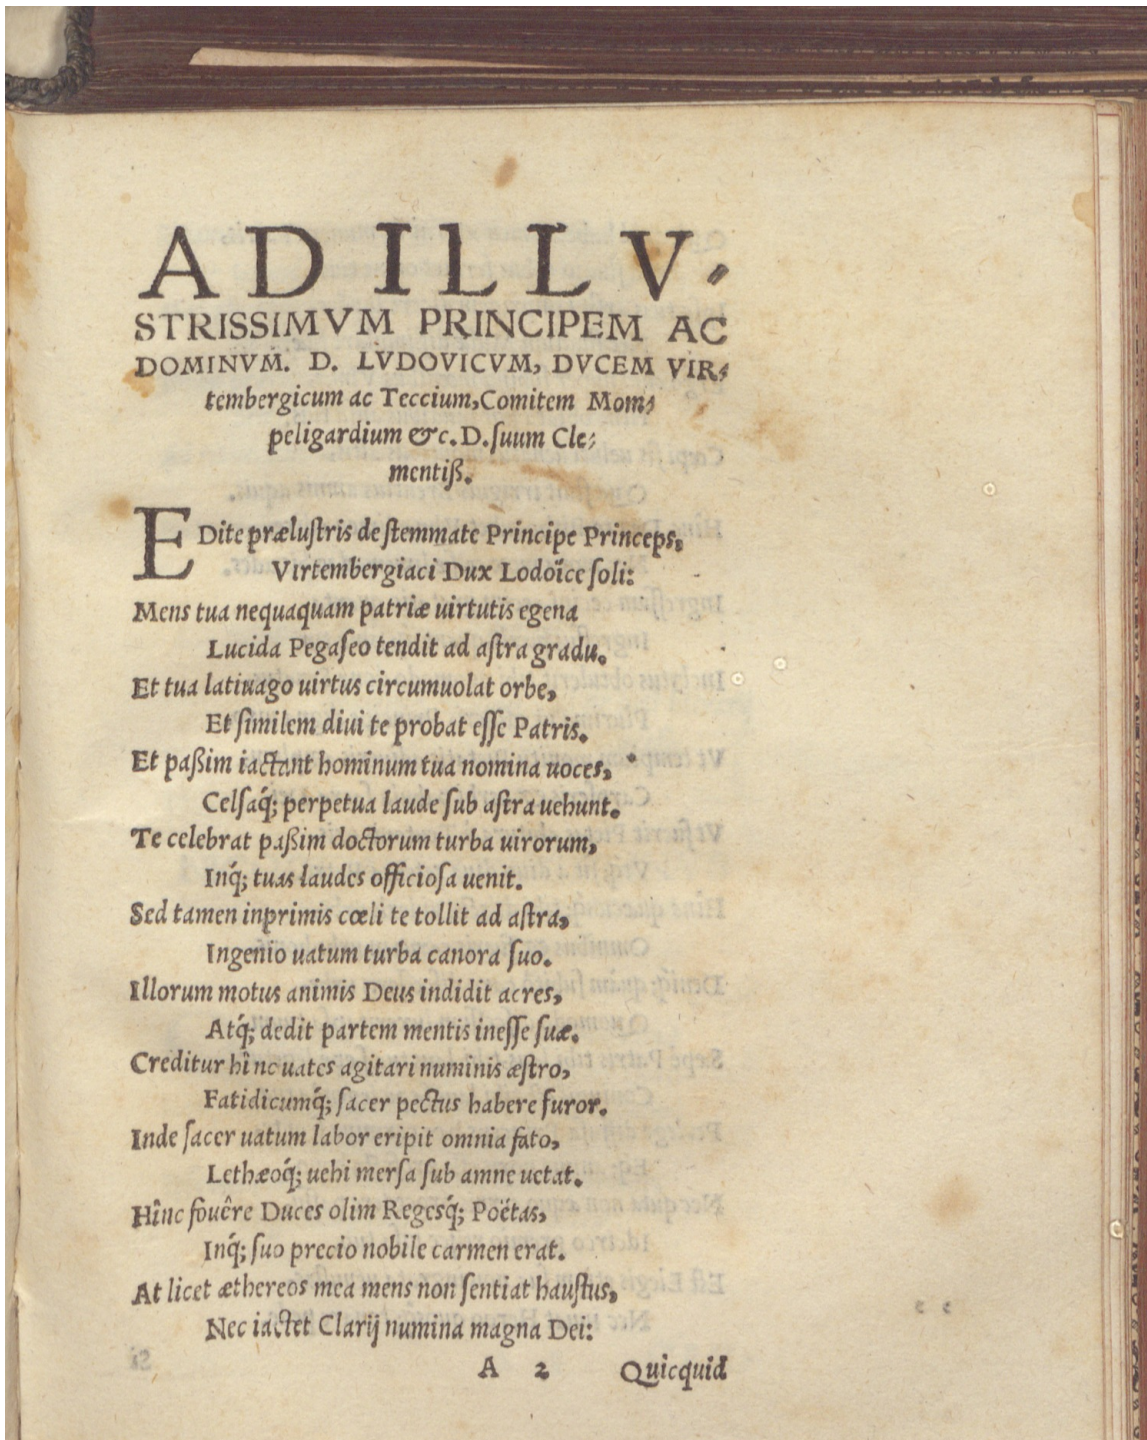 AD ILLV-
STRISSIMVM PRINCIPEM AC
DOMINVM. D. LVDOVICVM, DVCEM VIR-
tembergicum ac Teccium, Comitem Mom-
peligardium &c. D. suum Cle-
mentiß.
EDite prælustris de stemmate Principe Princeps,
Virtembergiaci Dux Lodoïce soli:
Mens tua nequaquam patriæ uirtutis egena
Lucida Pegaseo tendit ad astra gradu.
Et tua latiuago uirtus circumuolat orbe,
Et similem diui te probat esse Patris.
Et paßim iactant hominum tua nomina uoces,
Celsaq́; perpetua laude sub astra uehunt.
Te celebrat paßim doctorum turba uirorum,
Inq́; tuas laudes officiosa uenit.
Sed tamen inprimis cœli te tollit ad astra,
Ingenio uatum turba canora suo.
Illorum motus animis Deus indidit acres,
Atq́; dedit partem mentis inesse suæ.
Creditur hînc uates agitari numinis æstro,
Fatidicumq́; sacer pectus habere furor.
Inde sacer uatum labor eripit omnia fato,
Lethæoq́; uehi mersa sub amne uetat.
Hînc fouêre Duces olim Regesq́; Poëtas,
Inq́; suo precio nobile carmen erat.
At licet æthereos mea mens non sentiat haustus,
Nec iactet Clarij numina magna Dei:
A 2 Quicquid